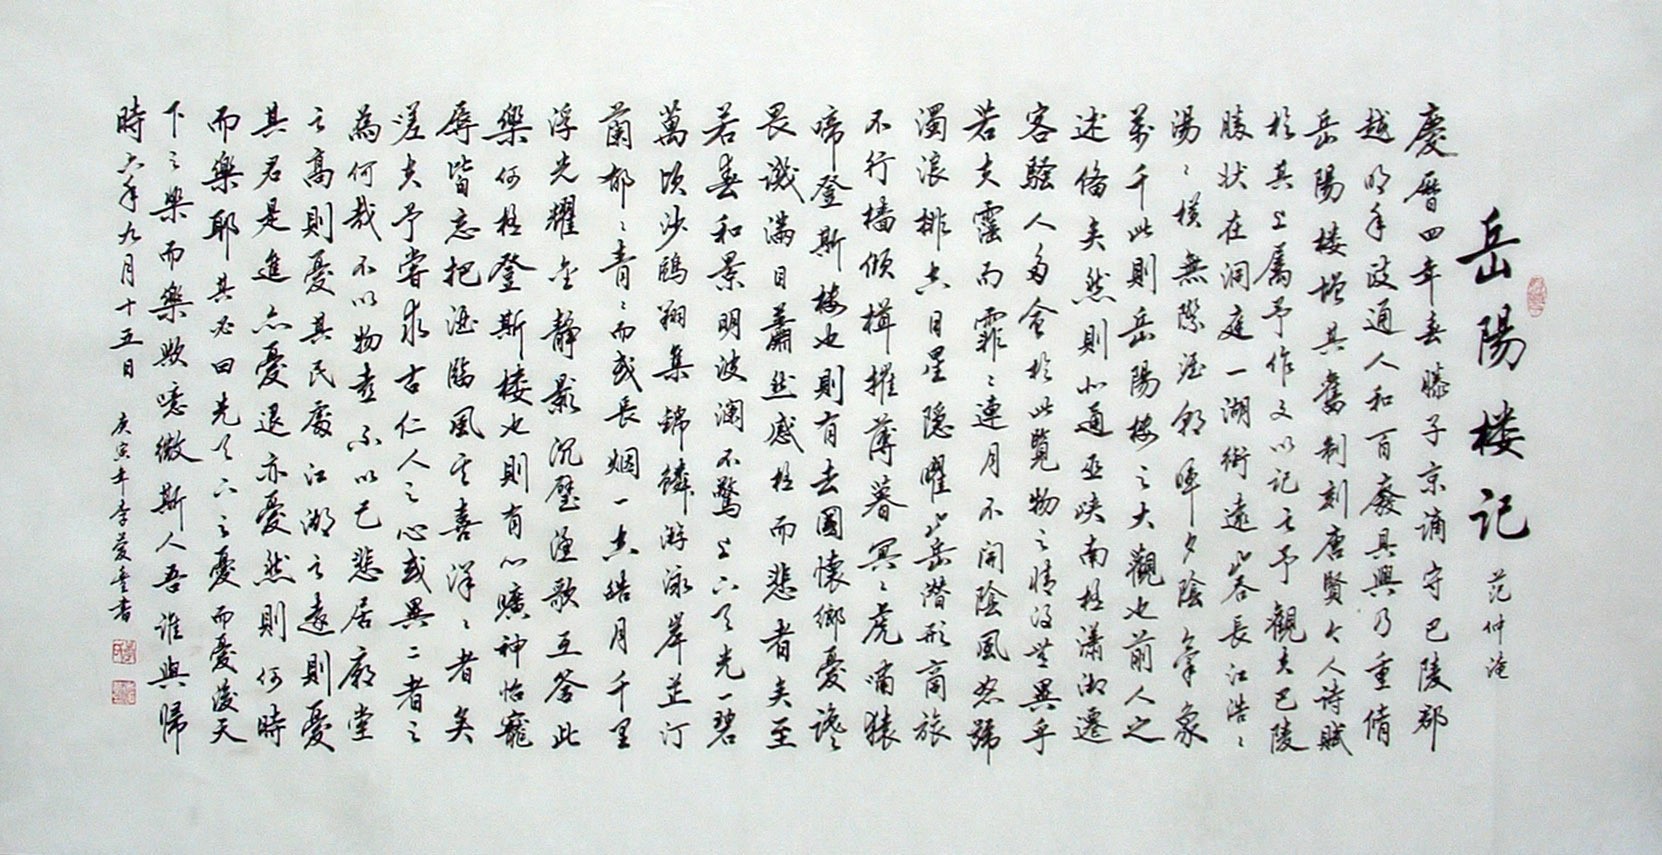 岳陽楼记 范仲淹
慶曆四年春滕子京謫守巴陵郡
越明年政通人和百廢具興乃重脩
岳陽楼增其舊制刻唐賢今人诗賦
於其上属予作文以記之予觀夫巴陵
勝状在洞庭一湖銜遠山吞長江浩〻
湯〻横無際涯朝暉夕陰氣象
萬千此則岳陽楼之大觀也前人之
述備矣然則北通巫峡南極瀟湘遷
客騷人多會於此覽物之情得無異乎
若夫霪雨霏〻連月不開陰風怒號
濁浪排空日星隱曜山岳潜形商旅
不行檣傾楫摧薄暮冥〻虎嘯猿
啼登斯楼也則有去國懷鄉憂讒
畏譏满目蕭然感極而悲者矣至
若春和景明波瀾不驚上下天光一碧
萬頃沙鷗翔集錦鱗游泳岸芷汀
蘭郁〻青〻而或長烟一空皓月千里
浮光耀金静影沉璧漁歌互答此
樂何極登斯楼也則有心曠神怡寵
辱皆忘把酒臨風其喜洋〻者矣
嗟夫予嘗求古仁人之心或異二者之
為何哉不以物喜不以己悲居廟堂
之高則憂其民處江湖之遠則憂
其君是進亦憂退亦憂然則何時
而樂耶其必曰先天下之憂而憂後天
下之樂而樂欤噫微斯人吾谁與歸
時六年九月十五日 庚寅年李